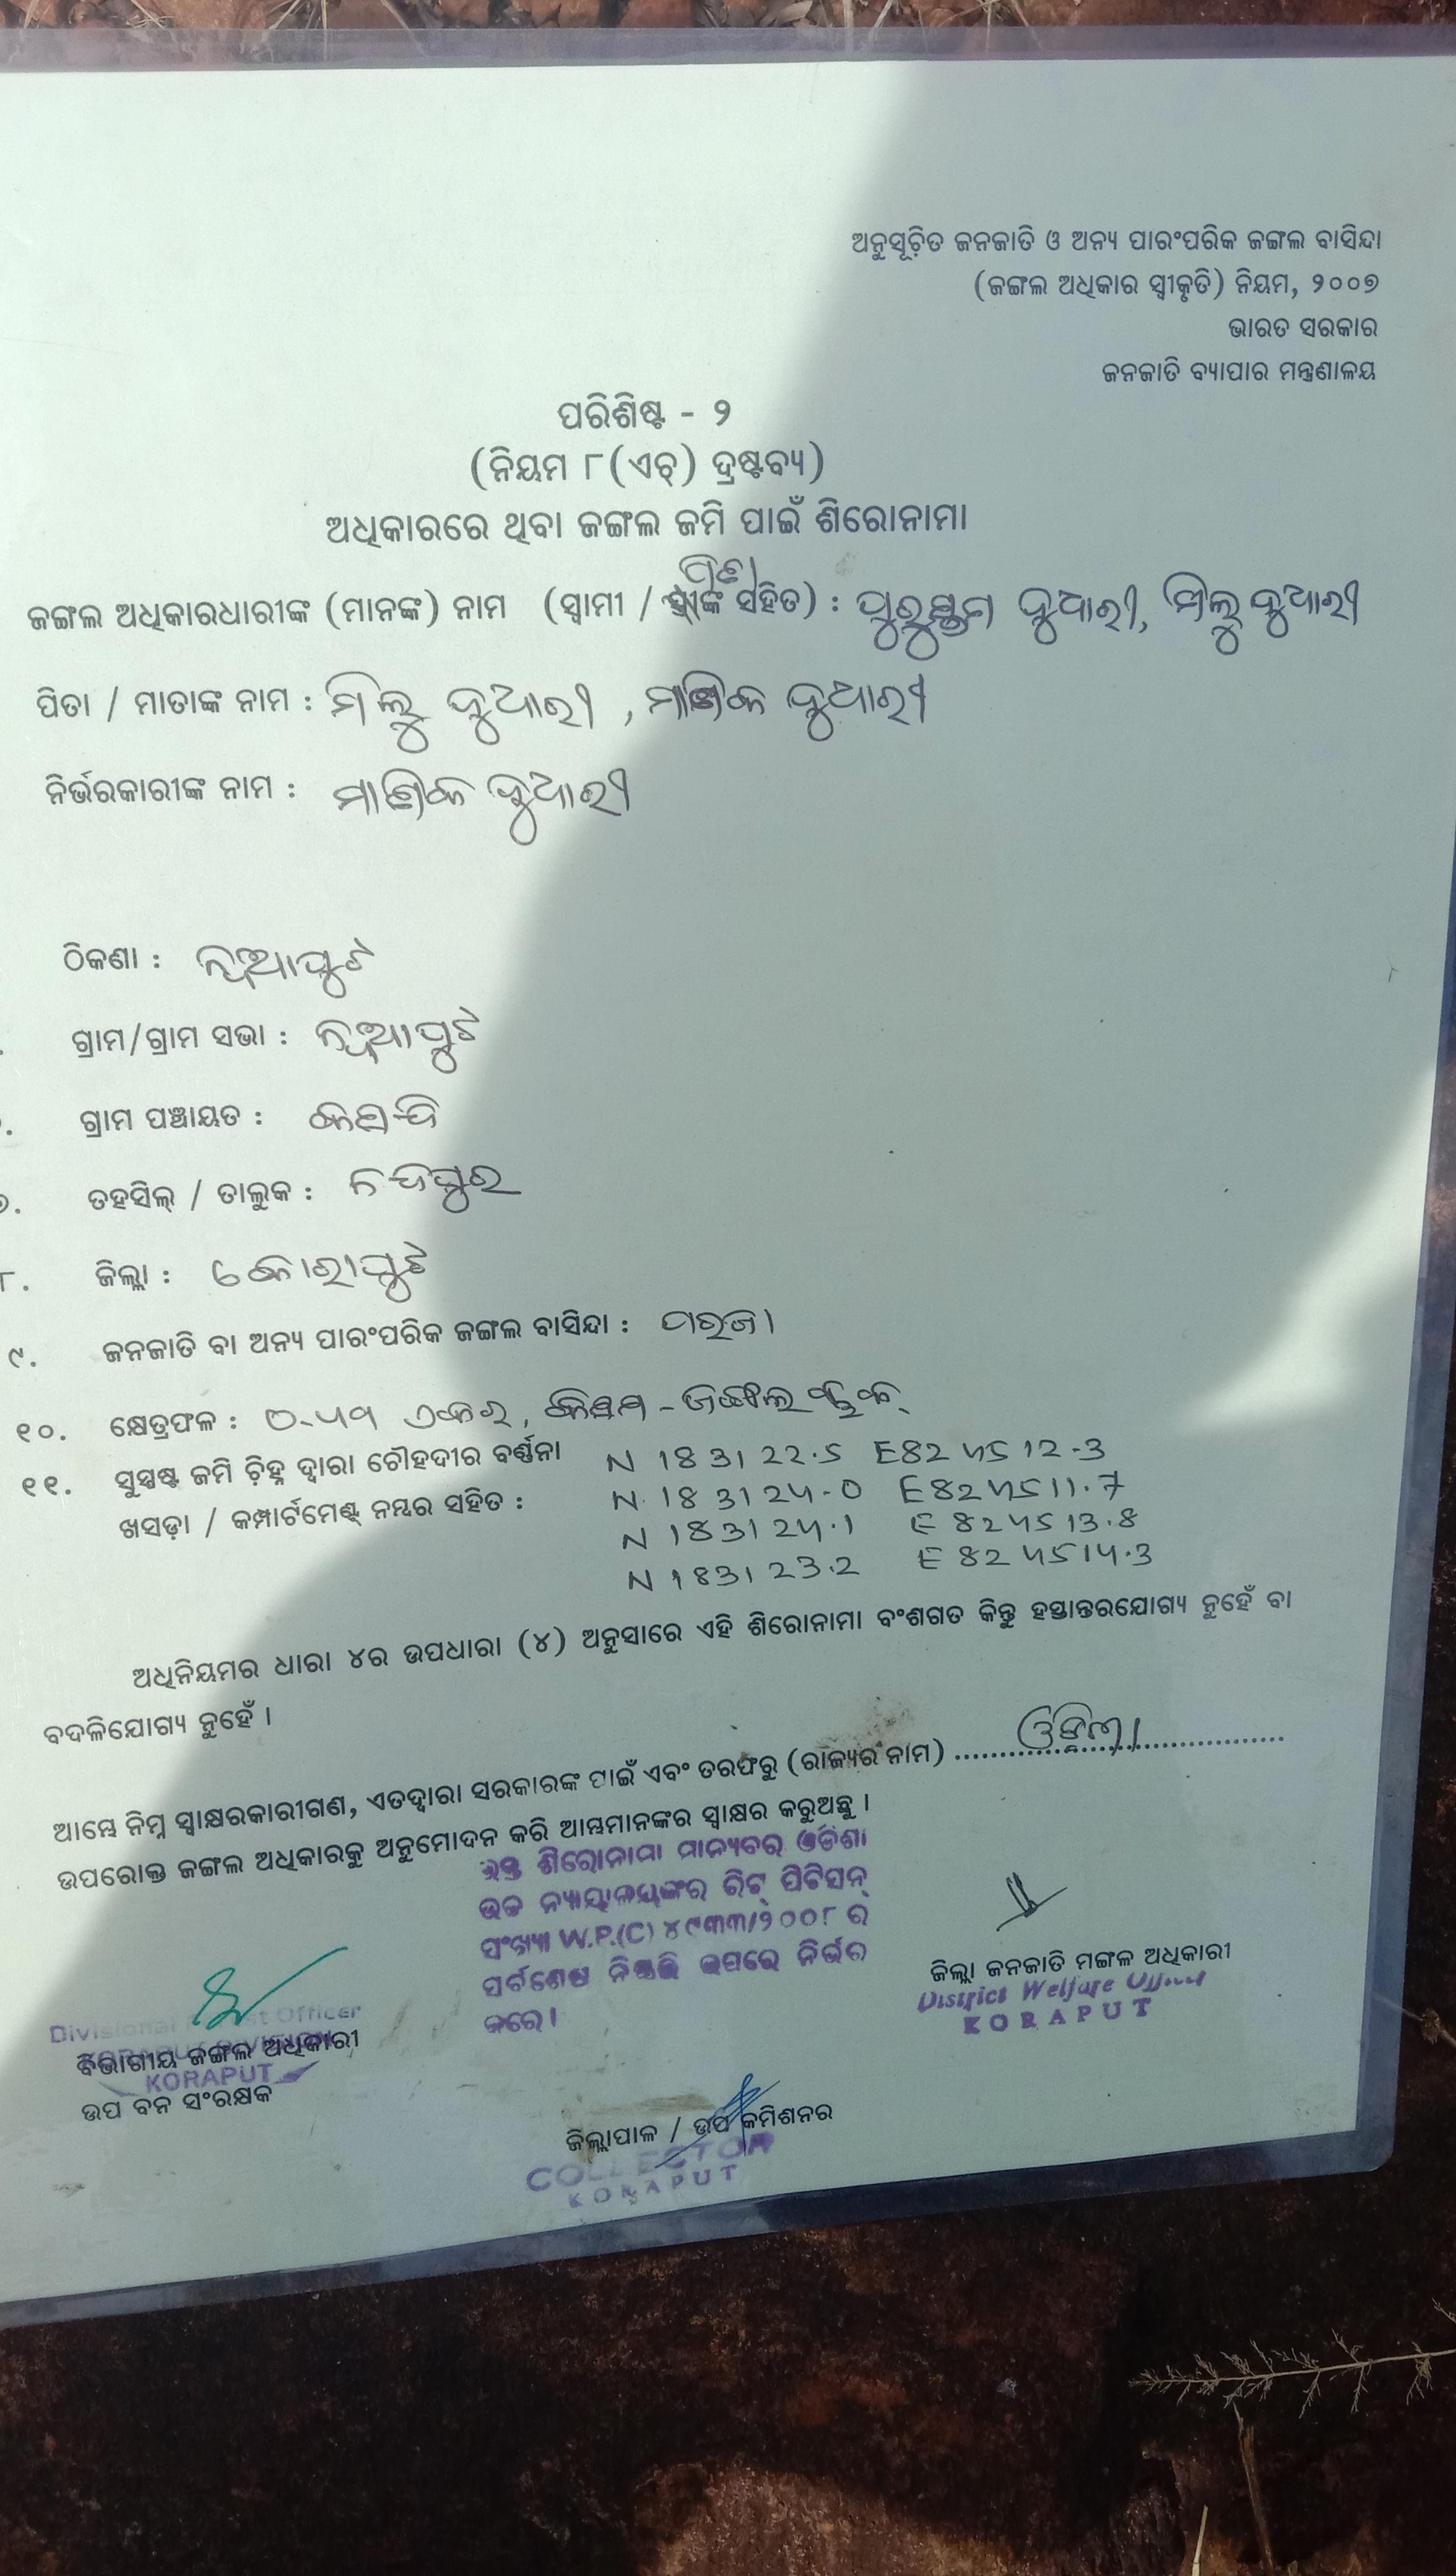 ଅନୁସୂଚିତ ଜନଜାତି ଓ ଅନ୍ୟ ପାରଂପରିକ ଜଙ୍ଗଲ ବାସିନ୍ଦା
(ଜଙ୍ଗଲ ଅଧିକାର ସ୍ୱୀକୃତି) ନିୟମ, ୨୦୦୭
ଭାରତ ସରକାର
ଜନଜାତି ବ୍ୟାପାର ମନ୍ତ୍ରଣାଳୟ
ପରିଶିଷ୍ଟ - ୨
(ନିୟମ ୮(ଏଚ୍) ଦ୍ରଷ୍ଟବ୍ୟ)
ଅଧିକାରରେ ଥିବା ଜଙ୍ଗଲ ଜମି ପାଇଁ ଶିରୋନାମା
ପିତା
ଜଙ୍ଗଲ ଅଧିକାରଧାରୀଙ୍କ (ମାନଙ୍କ) ନାମ (ସ୍ୱାମୀ / ସ୍ତ୍ରୀଙ୍କ ସହିତ) : ପୁରୁସ୍ତମ ଦୁଆରୀ, ମିଲୁ ଦୁଆରୀ
ପିତା / ମାତାଙ୍କ ନାମ : ମିଲୁ ଦୁଆରୀ, ମାଣିକ ଦୁଆରୀ
ନିର୍ଭରକାରୀଙ୍କ ନାମ : ମାଣିକ ଦୁଆରୀ
ଠିକଣା : ନୂଆପୁଟ
ଗ୍ରାମ/ଗ୍ରାମ ସଭା : ନୂଆପୁଟ
ଗ୍ରାମ ପଞ୍ଚାୟତ :
ତହସିଲ୍ / ତାଲୁକ : ନନ୍ଦପୁର
୮. ଜିଲ୍ଲା : କୋରାପୁଟ
୯. ଜନଜାତି ବା ଅନ୍ୟ ପାରଂପରିକ ଜଙ୍ଗଲ ବାସିନ୍ଦା : ପରଜା
୧୦. କ୍ଷେତ୍ରଫଳ : ଏକର, କିସମ - ଜଙ୍ଗଲ
୧୧. ସୁସ୍ପଷ୍ଟ ଜମି ଚିହ୍ନ ଦ୍ୱାରା ଚୌହଦୀର ବର୍ଣ୍ଣନା N 18 31 22.5 E82 45 12.3
ଖସଡ଼ା / କମ୍ପାର୍ଟମେଣ୍ଟ୍ ନମ୍ବର ସହିତ : N 18 31 24.0 E824511.7
N 18 31 24.1 E 82 45 13.8
N 1831 23.2 E 82 4514.3
ଅଧିନିୟମର ଧାରା ୪ର ଉପଧାରା (୪) ଅନୁସାରେ ଏହି ଶିରୋନାମା ବଂଶଗତ କିନ୍ତୁ ହସ୍ତାନ୍ତରଯୋଗ୍ୟ ନୁହେଁ ବା
ବଦଳିଯୋଗ୍ୟ ନୁହେଁ ।
ଆମ୍ଭେ ନିମ୍ନ ସ୍ୱାକ୍ଷରକାରୀଗଣ, ଏତଦ୍ୱାରା ସରକାରଙ୍କ ପାଇଁ ଏବଂ ତରଫରୁ (ରାଜ୍ୟର ନାମ) ଓଡିଶା
ଉପରୋକ୍ତ ଜଙ୍ଗଲ ଅଧିକାରକୁ ଅନୁମୋଦନ କରି ଆମ୍ଭମାନଙ୍କର ସ୍ୱାକ୍ଷର କରୁଅଛୁ ।
ଉକ୍ତ ଶିରୋନାମା ମାନ୍ୟବର ଓଡିଶା
ଉଚ୍ଚ ନ୍ୟାୟାଳୟଙ୍କର ରିଟ୍ ପିଟିସନ୍
ସଂଖ୍ୟା W.P.(C) ୪୯୩୩/୨୦୦୮ ର
ସର୍ବଶେଷ ନିଷ୍ପତ୍ତି ଉପରେ ନିର୍ଭର
କରେ।
ଜିଲ୍ଲା ଜନଜାତି ମଙ୍ଗଳ ଅଧିକାରୀ
District Welfare Officer
KORAPUT
Divisional Forest Officer
ବିଭାଗୀୟ ଜଙ୍ଗଲ ଅଧିକାରୀ
KORAPUT
ଉପ ବନ ସଂରକ୍ଷକ
ଜିଲ୍ଲାପାଳ / ଉପ କମିଶନର
COLLECTOR
KORAPUT